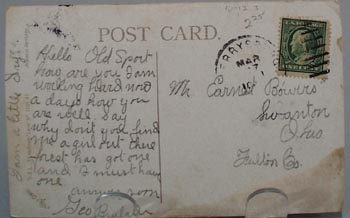 POST CARD.
Hello Old Sport
how are you I am
working hard now
a days how you
are well. say
why dont you find
me a girl out there
forest has got one
and I must have
one
answer soon
Geo
I am a little
Mr. Earnest Bowers
Swanton
Ohio
Fulton Co.
MAR